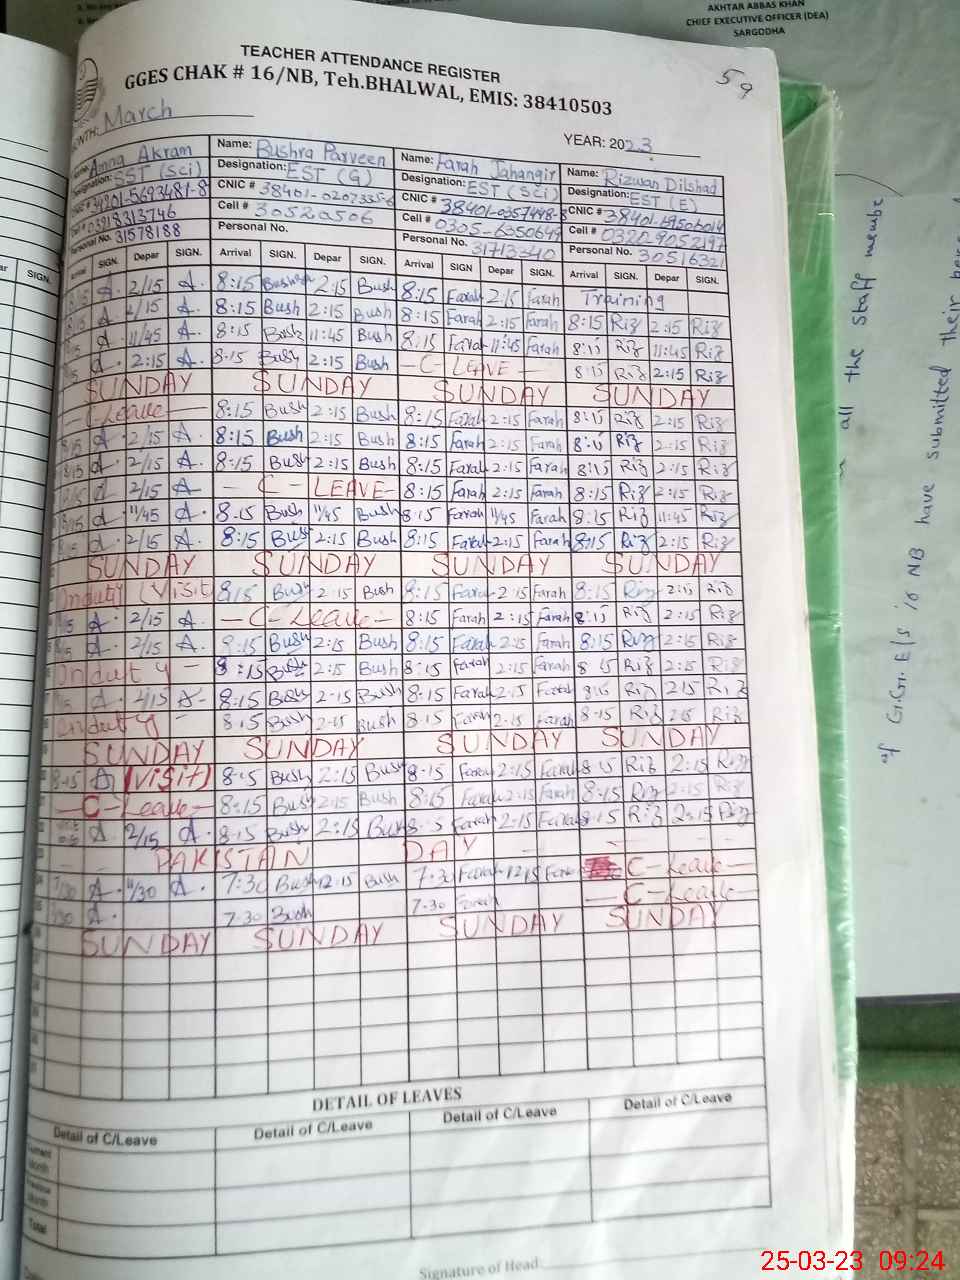 AKHTAR ABBAS KHAN
CHIEF EXECUTIVE OFFICER (DEA)
SARGODHA
TEACHER ATTENDANCE REGISTER
59
GGES CHAK # 16/NB, Teh.BHALWAL, EMIS: 38410503
MONTH: March YEAR: 2023
Name: Amna Akram Name: Bushra Parveen Name: Farah Jahangir Name: Rizwan Dilshad
Designation: SST (Sci) Designation: EST (G) Designation: EST (SCi) Designation: EST (E)
CNIC # 34201-5693481-8 CNIC # CNIC # CNIC #
Cell # 03218313746 Cell # 30520506 Cell # 0305-6050649 Cell #
Personal No. 31578188 Personal No. Personal No. 31713340 Personal No. 30516321
Arrival SIGN. Depar SIGN. Arrival SIGN. Depar SIGN. Arrival SIGN Depar SIGN. Arrival SIGN. Depar SIGN.
2/15 A. 8:15 Bush 2:15 Bush 8:15 Farah 2:15 Farah Training
2/15 A. 8:15 Bush 2:15 Bush 8:15 Farah 2:15 Farah 8:15 Riz 2:15 Riz
11/45 A. 8:15 Bush 11:45 Bush 8:15 Farah 11:45 Farah 8:15 Riz 11:45 Riz
2:15 A. 8:15 Bush 2:15 Bush - C - LEAVE - 8:15 Riz 2:15 Riz
SUNDAY SUNDAY SUNDAY SUNDAY
C-Leave 8:15 Bush 2:15 Bush 8:15 Farah 2:15 Farah 8:15 Riz 2:15 Riz
8/15 A. 2/15 A. 8:15 Bush 2:15 Bush 8:15 Farah 2:15 Farah 8:15 Riz 2:15 Riz
8/15 A. 2/15 A. 8:15 Bush 2:15 Bush 8:15 Farah 2:15 Farah 8:15 Riz 2:15 Riz
8/15 A. 2/15 A - C - LEAVE - 8:15 Farah 2:15 Farah 8:15 Riz 2:15 Riz
8/15 A. 11/45 A. 8:15 Bush 11/45 Bush 8:15 Farah 11/45 Farah 8:15 Riz 11:45 Riz
8/15 A. 2/15 A. 8:15 Bush 2:15 Bush 8:15 Farah 2:15 Farah 8:15 Riz 2:15 Riz
SUNDAY SUNDAY SUNDAY SUNDAY
Onduty (Visit 8:15 Bush 2:15 Bush 8:15 Farah 2:15 Farah 8:15 Riz 2:15 Riz
8/15 A. 2/15 A. - C-Leave - 8:15 Farah 2:15 Farah 8:15 Riz 2:15 Riz
8/15 A. 2/15 A. 8:15 Bush 2:15 Bush 8:15 Farah 2:15 Farah 8:15 Riz 2:15 Riz
Onduty - 8:15 Bush 2:15 Bush 8:15 Farah 2:15 Farah 8:15 Riz 2:15 Riz
A. 2/15 A. 8:15 Bush 2:15 Bush 8:15 Farah 2:15 Farah 8:15 Riz 2:15 Riz
Onduty - 8:15 Bush 2:15 Bush 8:15 Farah 2:15 Farah 8:15 Riz 2:15 Riz
SUNDAY SUNDAY SUNDAY SUNDAY
8-15 A (VISIT) 8:15 Bush 2:15 Bush 8:15 Farah 2:15 Farah 8:15 Riz 2:15 Riz
- C-Leave - 8:15 Bush 2:15 Bush 8:15 Farah 2:15 Farah 8:15 Riz 2:15 Riz
A. 2/15 A. 8:15 Bush 2:15 Bush 8:15 Farah 2:15 Farah 8:15 Riz 2:15 Riz
PAKISTAN DAY
7/30 A. 11/30 A. 7:30 Bush 12:15 Bush 7:30 Farah 12:15 Farah C-Leave -
7/30 A. 7-30 Bush 7-30 Farah - C-Leave -
SUNDAY SUNDAY SUNDAY SUNDAY
DETAIL OF LEAVES
Detail of C/Leave Detail of C/Leave Detail of C/Leave Detail of C/Leave
Current Month
Previous Month
Total
Signature of Head:
all the staff membe
of G.G.E/S 16 NB have submitted their
SIGN.
25-03-23 09:24